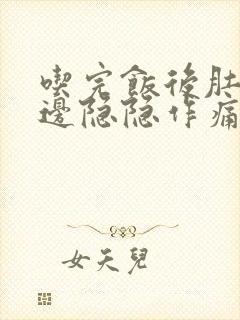 喫完飯後肚
邊隱隱作痛
女天兒